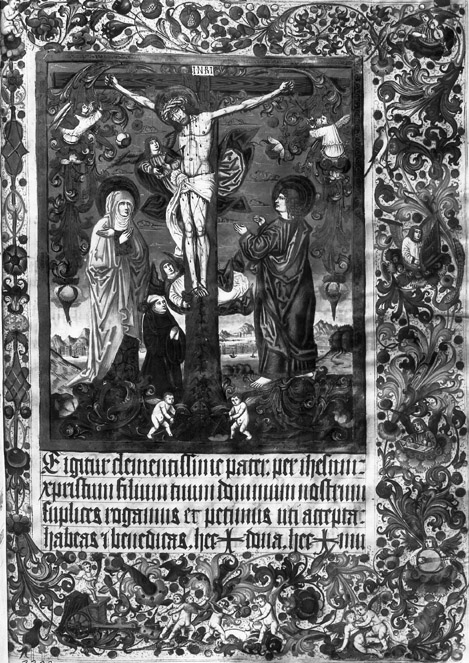 INRI
E igitur clementissime pater: per ihesum
xpristum filium tuum dominum nostrum
suplices rogamus et petimus uti accepta
habeas ⁊ benedicas. hec ✝ dona. hec ✝ mu